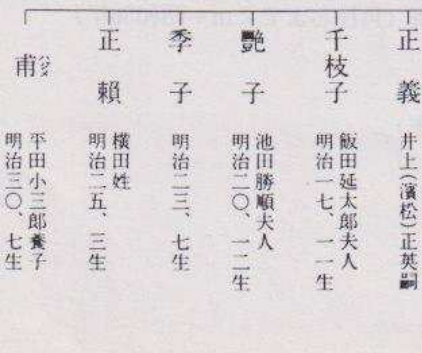 正義
井上(濱松)正英嗣
千枝子
飯田延太郎夫人
明治一七、一一生
艷子
池田勝順夫人
明治二〇、一二生
季子
明治二三、七生
正頼
横田姓
明治二五、三生
甫
ハジメ
平田小三郎養子
明治三〇、七生